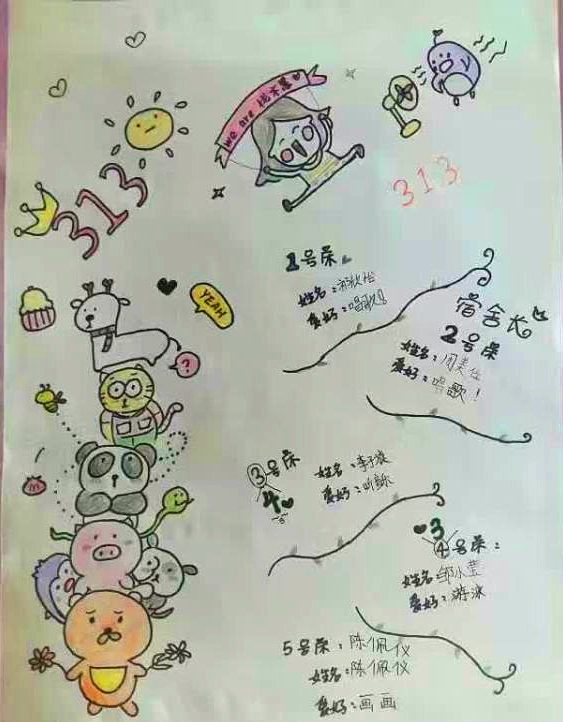 313
We are 伐木累
313
YEAH
?
1号床
姓名:
爱好:唱歌
宿舍长
2号床
姓名:周美仕
爱好:唱歌!
③号床
4
姓名:李子璇
爱好:听歌
3
④号床:
姓名:邹小莹
爱好:游泳
5号床:陈佩仪
姓名:陈佩仪
爱好:画画